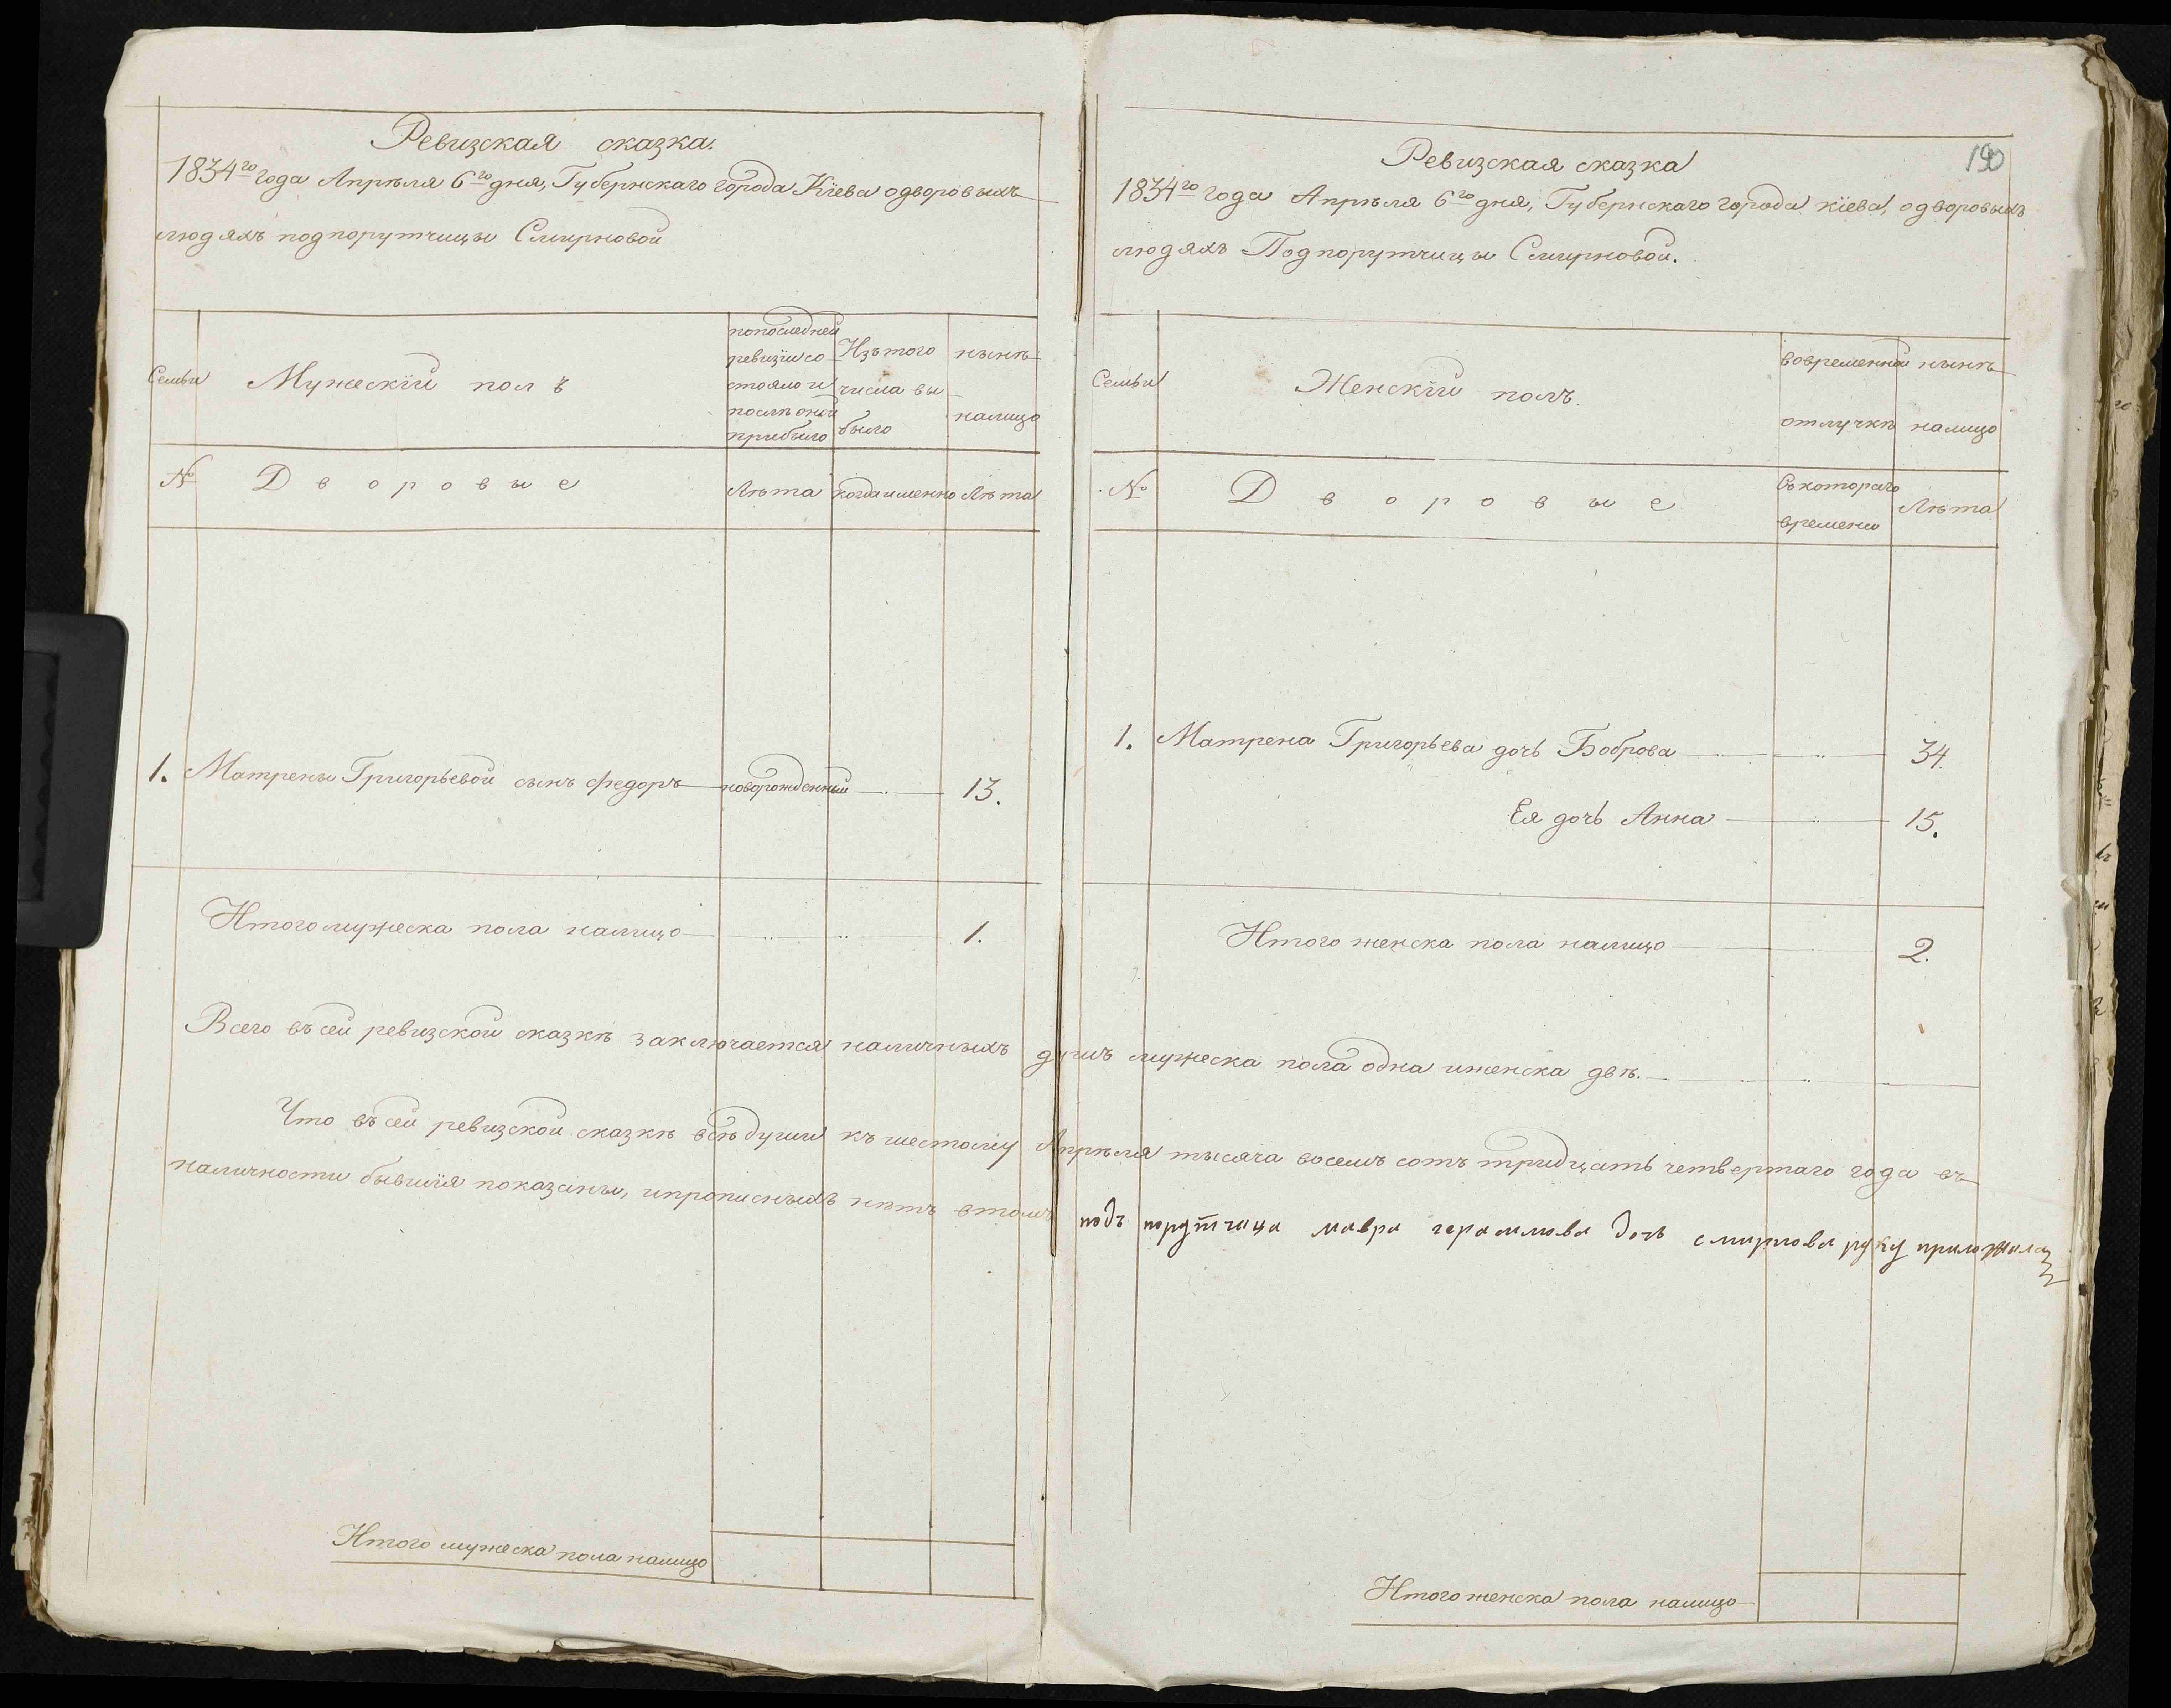 Ревизская сказка.
1834го года Апрѣля 6го дня, Губернскаго города Кіева одворовыхъ
людяхъ подпорутчицы Смирновой
Семьи
Мужескій полъ
попоследней
ревизіи со
стояло и
послѣ оной
прибыло
Изътого
числа вы
было
нынѣ
налицо
№
Дворовые
Лѣта
когда именно
Лѣта
1. Матрены Григорьевой сынъ Федоръ новорожденный 13.
Итого мужеска пола налицо 1.
190
Ревизская сказка
1834го года Апрѣля 6го дня, Губернскаго города кіева, одворовыхъ
людяхъ Подпорутчицы Смирновой.
Семьи
Женскій полъ.
вовременной
отлучкѣ
нынѣ
налицо
№
Дворовые
Съкотораго
времени
Лѣта
1. Матрена Григорьева дочь Боброва 34.
Ея дочь Анна 15.
Итого женска пола налицо 2.
Всего въ сей ревизской сказкѣ заключается наличныхъ душъ мужеска пола одна иженска двѣ.
Что въ сей ревизской сказкѣ всѣ души къ шестому Апрѣля тысяча восемъ сотъ тридцать четвертаго года въ
наличности бывшія показаны, ипрописныхъ нѣтъ втомъ подъ порутчица мавра герасимова дочь смирнова руку приложила
Итого мужеска пола налицо
Итого женска пола налицо